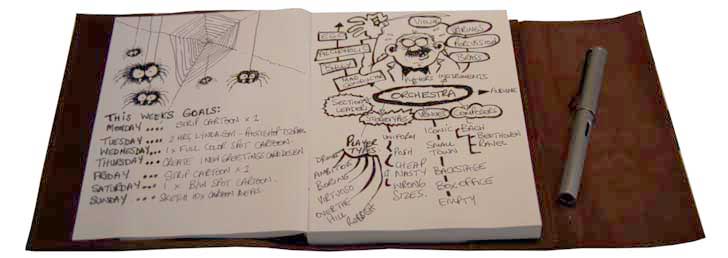 THIS WEEKS GOALS:
MONDAY .... STRIP CARTOON x 1
TUESDAY .... 2 HRS LYNDA.COM - PHOTOSHOP
WEDNESDAY.... 1 x FULL COLOR SPOT CARTOON.
THURSDAY.... CREATE 1 NEW GREETINGS CARD DESIGN
FRIDAY .... STRIP CARTOON x 1
SATURDAY.... 1 x B/W SPOT CARTOON.
SUNDAY .... SKETCH 10x CARTOON IDEAS.
EGO
BULLY
CONDUCTOR
VIOLIN
STRINGS
PERCUSSION
BRASS
PLAYERS INSTRUMENTS
ORCHESTRA
AUDIENCE
SECTIONAL
LEADERS
STEREOTYPES
VENUES
COMPOSERS
PLAYER
TYPES
AMBITIOUS
BORING
VIRTUOSO
OVER THE
HILL
RUBBISH
UNIFORM
POSH
CHEAP
NASTY
WRONG
SIZES.
ICONIC
SMALL
TOWN
BACKSTAGE
BOX OFFICE
EMPTY
BACH
BEETHOVEN
RAVEL